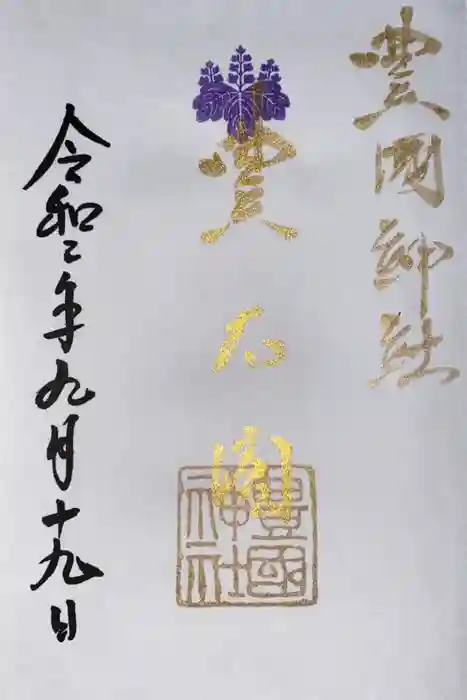 豊國神社
豊太閤
豊國
神社
令和二年九月十九日